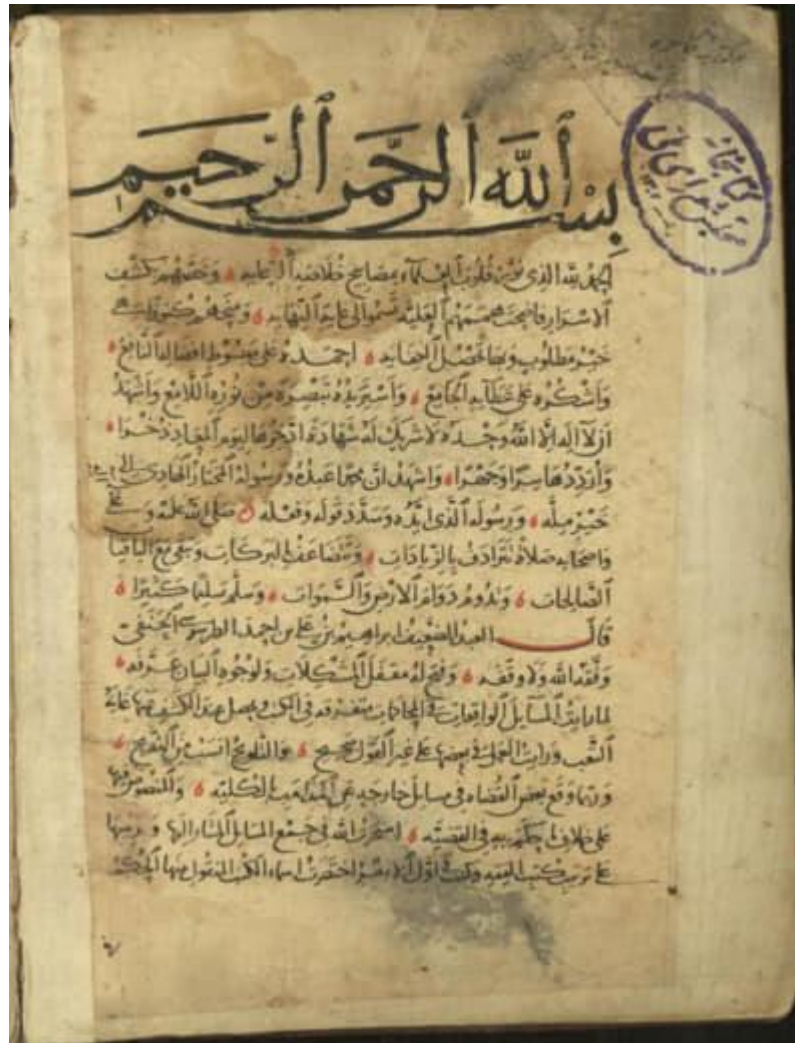 بسم الله الرحمن الرحيم
الحمد لله الذي نور قلوب العلماء بمصابيح خلاصة الهداية وخصهم بكشف
الاسرار فاضحت هممهم العلية تسموا الى غاية النهاية ومنحهم كنوز
خير مطلوب وبها تحصل احمده على مبسوط افضاله النافع
واشكره على عطايه الجامع واستزيده تبصرة من نوره اللامع واشهد
ان لا اله الا الله وحده لا شريك له شهادة ادخرها ليوم المعاد ذخرا
وارددها سرا وجهرا واشهد ان محمدا عبده ورسوله المختار الهادي الى
خير ملة ورسوله الذي ايده وسدد قوله وفعله صلى الله عليه وعلى
واصحابه صلاة تترادف بالزيادات وتتضاعف البركات وتبقى مع الباقيات
الصالحات وتدوم دوام الارض والسموات وسلم تسليما كثيرا
قال العبد الضعيف ابراهيم بن علي بن احمد الطرسوسي الحنفي
وفقه الله ولا وقفه وفتح له مقفل المشكلات ولوجوه البيان عرفه
لما رايت المسايل الواقعات في المحاكمات متفرقة في الكتب ويحصل عند الكشف عنها غاية
التعب ورايت العمل في بعضها على غير القول الصحيح
وربما وقع بعض القضاة في مسايل خارجة عن المذاهب بالكلية والمنصوص فيها
على خلاف ما حكم به في القضية استخرت الله في جمع المسايل المشار اليها ورتبتها
على ترتيب كتب الفقه اسماء الكتب المنقول منها
كتابخانه
مجلس شورای ملی